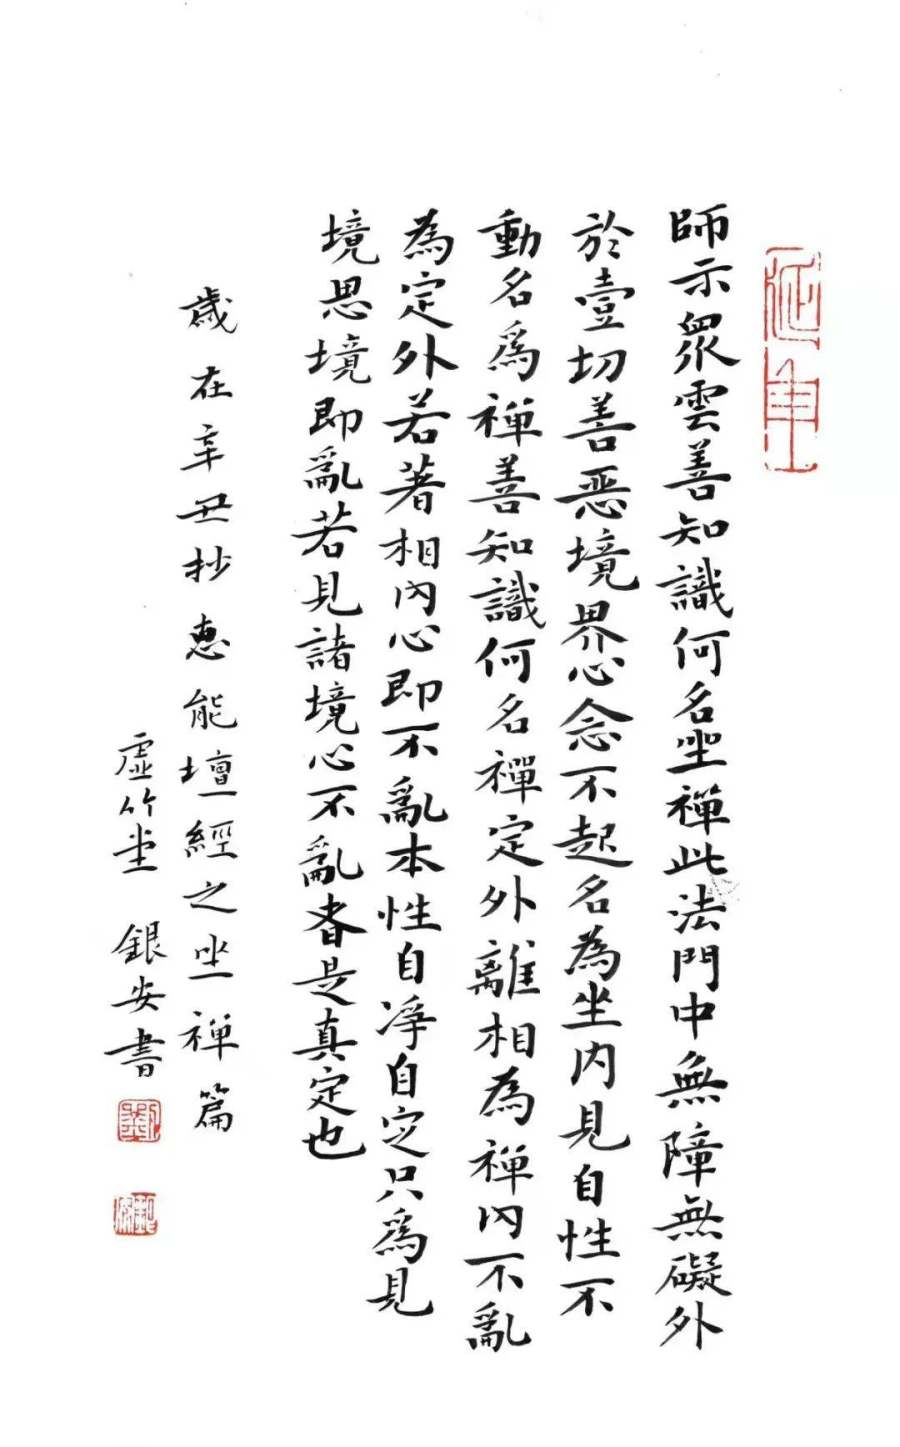 師示眾雲善知識何名坐禪此法門中無障無礙外
於壹切善惡境界心念不起名為坐內見自性不
動名為禪善知識何名禪定外離相為禪內不亂
為定外若著相內心即不亂本性自淨自定只為見
境思境即亂若見諸境心不亂者是真定也
歲在辛丑抄惠能壇經之坐禪篇
虛竹堂 銀安書